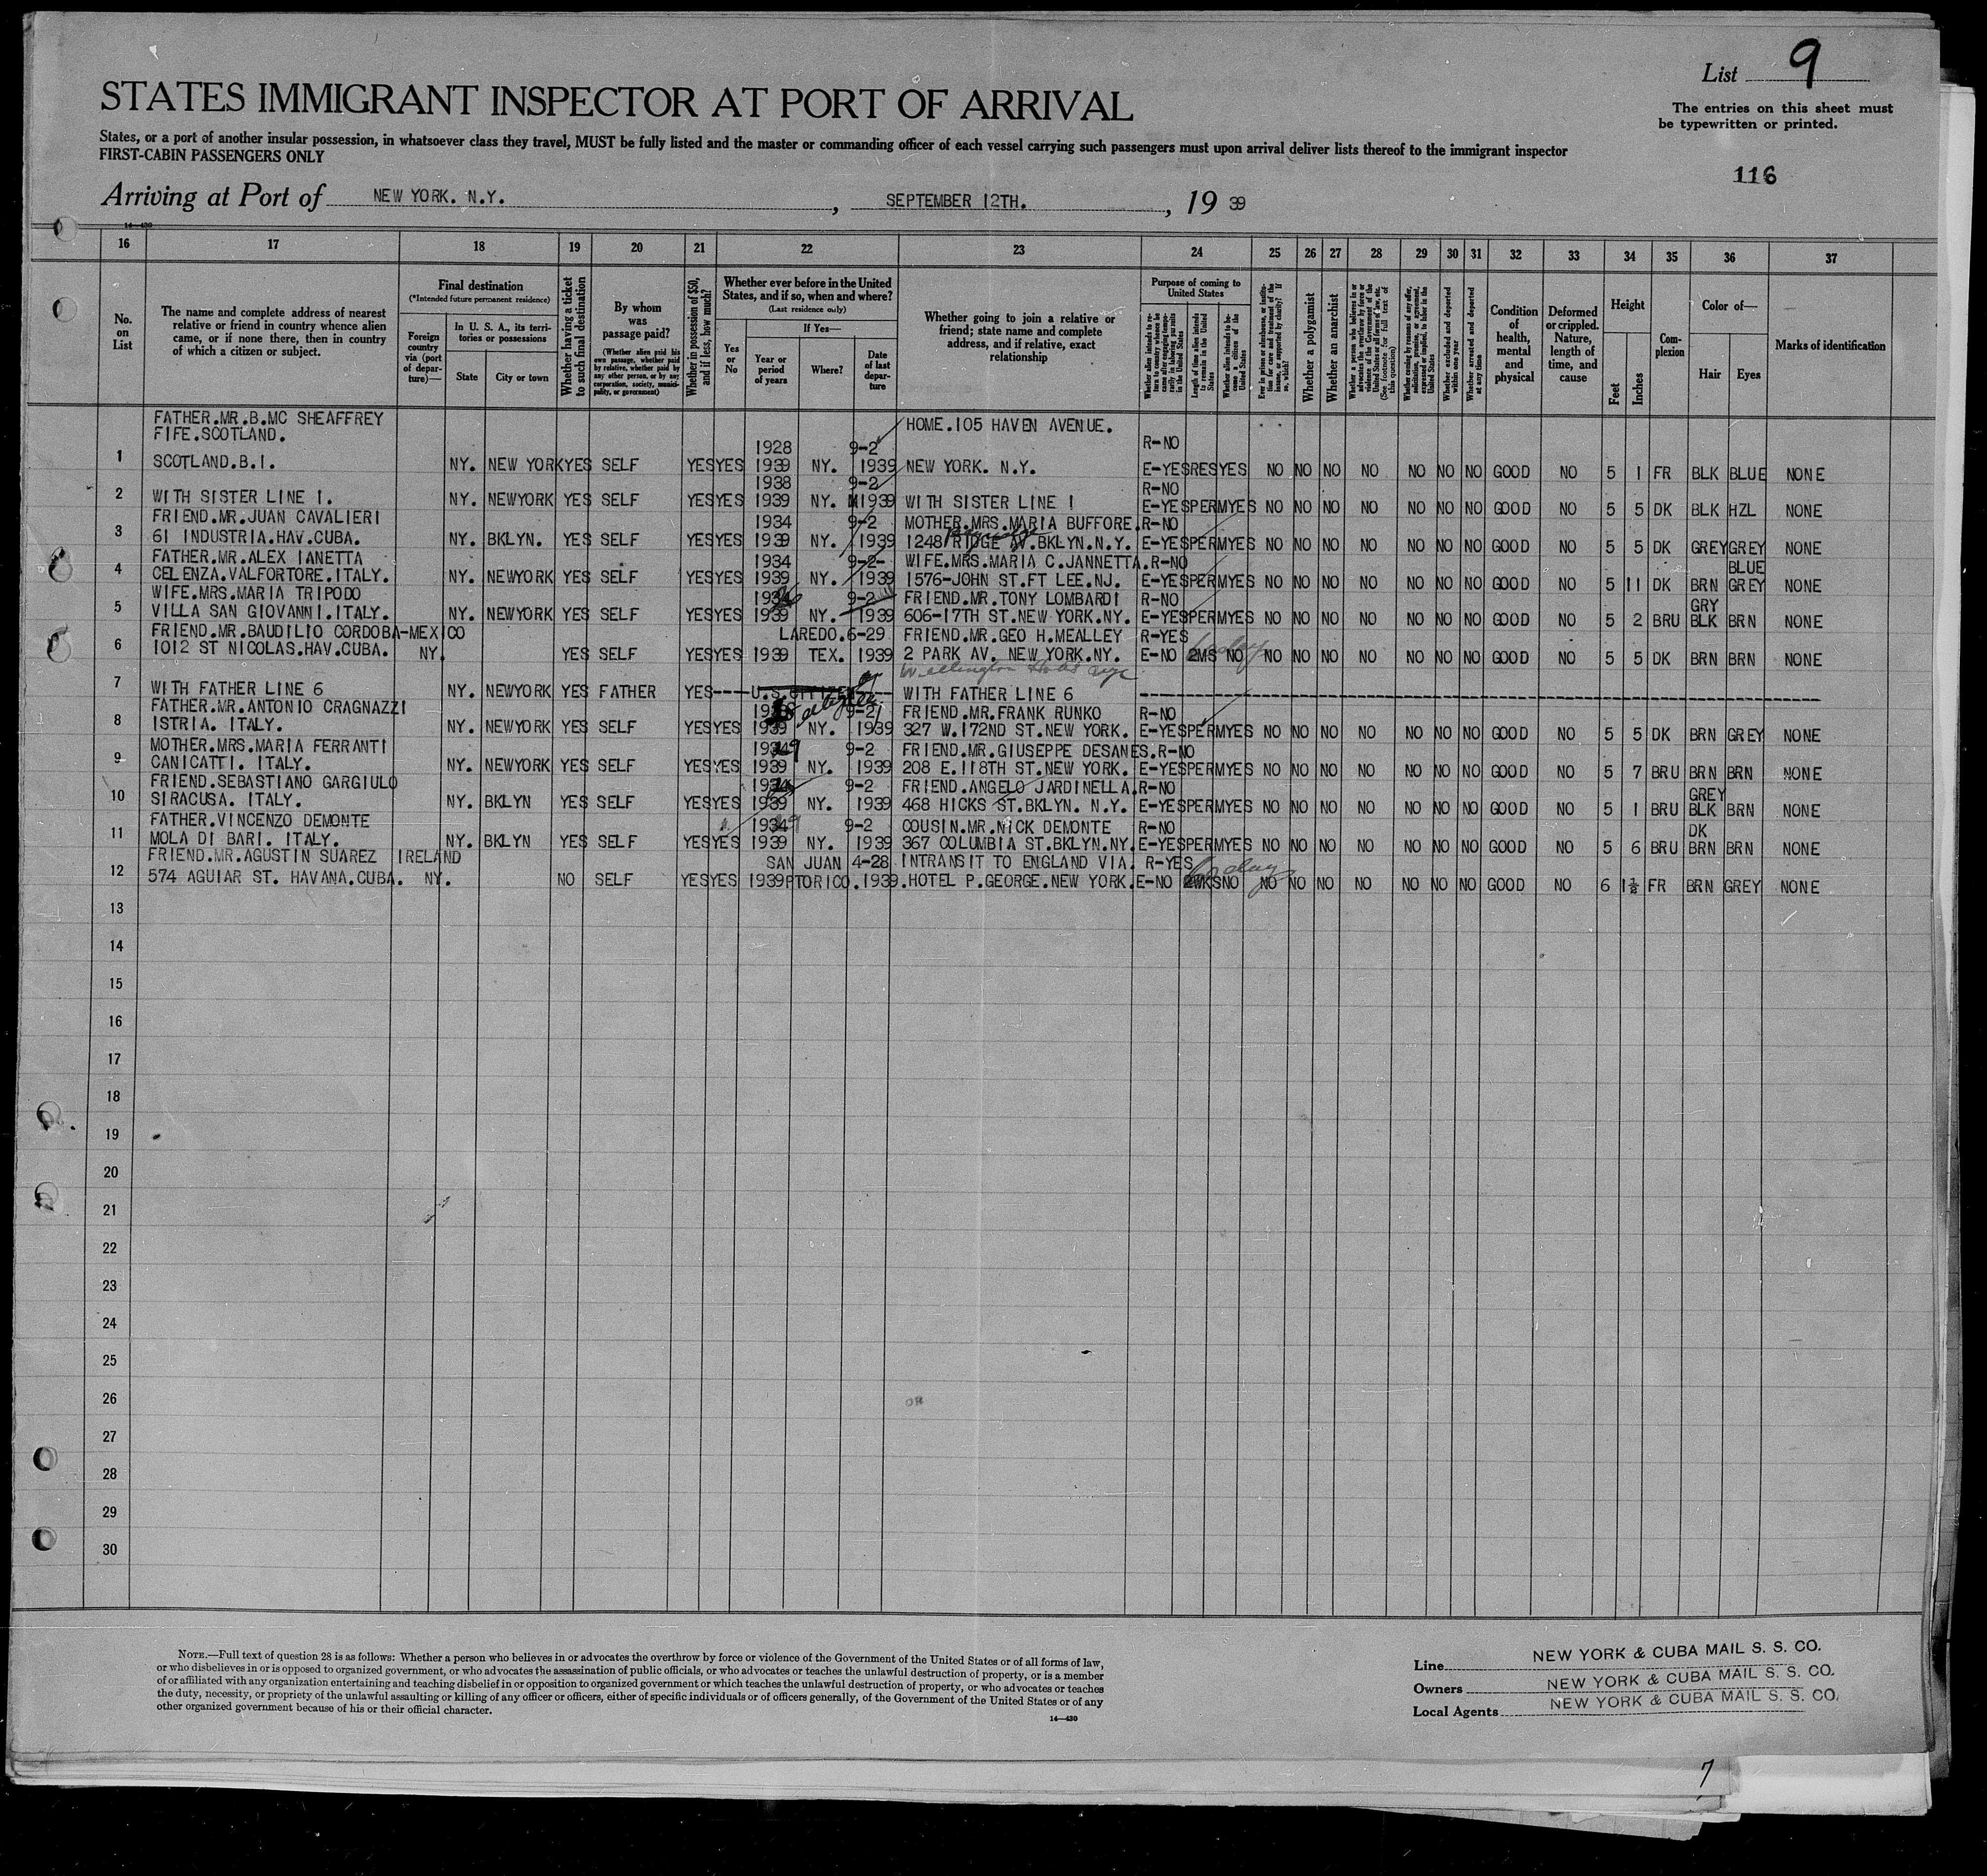 List 9
STATES IMMIGRANT INSPECTOR AT PORT OF ARRIVAL
The entries on this sheet must
be typewritten or printed.
States, or a port of another insular possession, in whatsoever class they travel, MUST be fully listed and the master or commanding officer of each vessel carrying such passengers must upon arrival deliver lists thereof to the immigrant inspector
FIRST-CABIN PASSENGERS ONLY
116
Arriving at Port of NEW YORK. N.Y. , SEPTEMBER 12TH. , 19 39
14—430
16 17 18 19 20 21 22 23 24 25 26 27 28 29 30 31 32 33 34 35 36 37
No. on List
The name and complete address of nearest relative or friend in country whence alien came, or if none there, then in country of which a citizen or subject.
Final destination
(*Intended future permanent residence)
Foreign country via (port of departure)—
In U. S. A., its territories or possessions
State City or town
Whether having a ticket to such final destination
By whom was passage paid?
(Whether alien paid his own passage, whether paid by relative, whether paid by any other person, or by any corporation, society, municipality, or government)
Whether in possession of $50, and if less, how much?
Whether ever before in the United States, and if so, when and where?
(Last residence only)
Yes or No
If Yes—
Year or period of years
Where?
Date of last departure
Whether going to join a relative or friend; state name and complete address, and if relative, exact relationship
Purpose of coming to United States
Whether alien intends to return to country whence he came after engaging temporarily in laboring pursuits in the United States
Length of time alien intends to remain in the United States
Whether alien intends to become a citizen of the United States
Ever in prison or almshouse, or institution for care and treatment of the insane, or supported by charity? If so, which?
Whether a polygamist
Whether an anarchist
Whether a person who believes in or advocates the overthrow by force or violence of the Government of the United States or all forms of law, etc. (See footnote for full text of this question)
Whether coming by reasons of any offer, solicitation, promise, or agreement, expressed or implied, to labor in the United States
Whether excluded and deported within one year
Whether arrested and deported at any time
Condition of health, mental and physical
Deformed or crippled. Nature, length of time, and cause
Height
Feet Inches
Complexion
Color of—
Hair Eyes
Marks of identification
FATHER.MR.B.MC SHEAFFREY HOME.105 HAVEN AVENUE.
FIFE.SCOTLAND. 1928 9-2 R-NO
1 SCOTLAND.B.I. NY. NEW YORK YES SELF YES YES 1939 NY. 1939 NEW YORK. N.Y. E-YES RES YES NO NO NO NO NO NO NO GOOD NO 5 1 FR BLK BLUE NONE
1938 9-2 R-NO
2 WITH SISTER LINE 1. NY. NEWYORK YES SELF YES YES 1939 NY. 1939 WITH SISTER LINE 1 E-YES PERM YES NO NO NO NO NO NO NO GOOD NO 5 5 DK BLK HZL NONE
FRIEND.MR.JUAN CAVALIERI 1934 9-2 MOTHER.MRS.MARIA BUFFORE. R-NO
3 61 INDUSTRIA.HAV.CUBA. NY. BKLYN. YES SELF YES YES 1939 NY. 1939 1248 RIDGE AV.BKLYN.N.Y. E-YES PERM YES NO NO NO NO NO NO NO GOOD NO 5 5 DK GREY GREY NONE
FATHER.MR.ALEX IANETTA 1934 9-2- WIFE.MRS.MARIA C.JANNETTA. R-NO BLUE
4 CELENZA.VALFORTORE.ITALY. NY. NEWYORK YES SELF YES YES 1939 NY. 1939 1576-JOHN ST.FT LEE.NJ. E-YES PERM YES NO NO NO NO NO NO NO GOOD NO 5 11 DK BRN GREY NONE
WIFE.MRS.MARIA TRIPODO 9-2 FRIEND.MR.TONY LOMBARDI R-NO GRY
5 VILLA SAN GIOVANNI.ITALY. NY. NEWYORK YES SELF YES YES 1939 NY. 1939 606-17TH ST.NEW YORK.NY. E-YES PERM YES NO NO NO NO NO NO NO GOOD NO 5 2 BRU BLK BRN NONE
FRIEND.MR.BAUDILIO CORDOBA-MEXICO LAREDO.6-29 FRIEND.MR.GEO H.MEALLEY R-YES
6 1012 ST NICOLAS.HAV.CUBA. NY. YES SELF YES YES 1939 TEX. 1939 2 PARK AV. NEW YORK.NY. E-NO 2MS NO NO NO NO NO NO NO NO GOOD NO 5 5 DK BRN BRN NONE
Wellington Hotel nyc
7 WITH FATHER LINE 6 NY. NEWYORK YES FATHER YES----U.S.CITIZEN---- WITH FATHER LINE 6
FATHER.MR.ANTONIO CRAGNAZZI 9-2 FRIEND.MR.FRANK RUNKO R-NO
8 ISTRIA. ITALY. NY. NEWYORK YES SELF YES YES 1939 NY. 1939 327 W.172ND ST.NEW YORK. E-YES PERM YES NO NO NO NO NO NO NO GOOD NO 5 5 DK BRN GREY NONE
MOTHER.MRS.MARIA FERRANTI 1934 9-2 FRIEND.MR.GIUSEPPE DESANES. R-NO
9 CANICATTI. ITALY. NY. NEWYORK YES SELF YES YES 1939 NY. 1939 208 E.118TH ST.NEW YORK. E-YES PERM YES NO NO NO NO NO NO NO GOOD NO 5 7 BRU BRN BRN NONE
FRIEND.SEBASTIANO GARGIULO 9-2 FRIEND.ANGELO JARDINELLA. R-NO GREY
10 SIRACUSA. ITALY. NY. BKLYN YES SELF YES YES 1939 NY. 1939 468 HICKS ST.BKLYN. N.Y. E-YES PERM YES NO NO NO NO NO NO NO GOOD NO 5 1 BRU BLK BRN NONE
FATHER.VINCENZO DEMONTE 1934 9-2 COUSIN.MR.NICK DEMONTE R-NO DK
11 MOLA DI BARI. ITALY. NY. BKLYN YES SELF YES YES 1939 NY. 1939 367 COLUMBIA ST.BKLYN.NY. E-YES PERM YES NO NO NO NO NO NO NO GOOD NO 5 6 BRU BRN BRN NONE
FRIEND.MR.AGUSTIN SUAREZ IRELAND SAN JUAN 4-28. INTRANSIT TO ENGLAND VIA. R-YES
12 574 AGUIAR ST. HAVANA.CUBA. NY. NO SELF YES YES 1939 PTORICO. 1939. HOTEL P.GEORGE.NEW YORK. E-NO 2WKS NO NO NO NO NO NO NO NO GOOD NO 6 1½ FR BRN GREY NONE
13
14
15
16
17
18
19
20
21
22
23
24
25
26
27
28
29
30
NOTE.—Full text of question 28 is as follows: Whether a person who believes in or advocates the overthrow by force or violence of the Government of the United States or of all forms of law,
or who disbelieves in or is opposed to organized government, or who advocates the assassination of public officials, or who advocates or teaches the unlawful destruction of property, or is a member
of or affiliated with any organization entertaining and teaching disbelief in or opposition to organized government or which teaches the unlawful destruction of property, or who advocates or teaches
the duty, necessity, or propriety of the unlawful assaulting or killing of any officer or officers, either of specific individuals or of officers generally, of the Government of the United States or of any
other organized government because of his or their official character.
14—430
Line NEW YORK & CUBA MAIL S. S. CO.
Owners NEW YORK & CUBA MAIL S. S. CO.
Local Agents NEW YORK & CUBA MAIL S. S. CO.
7